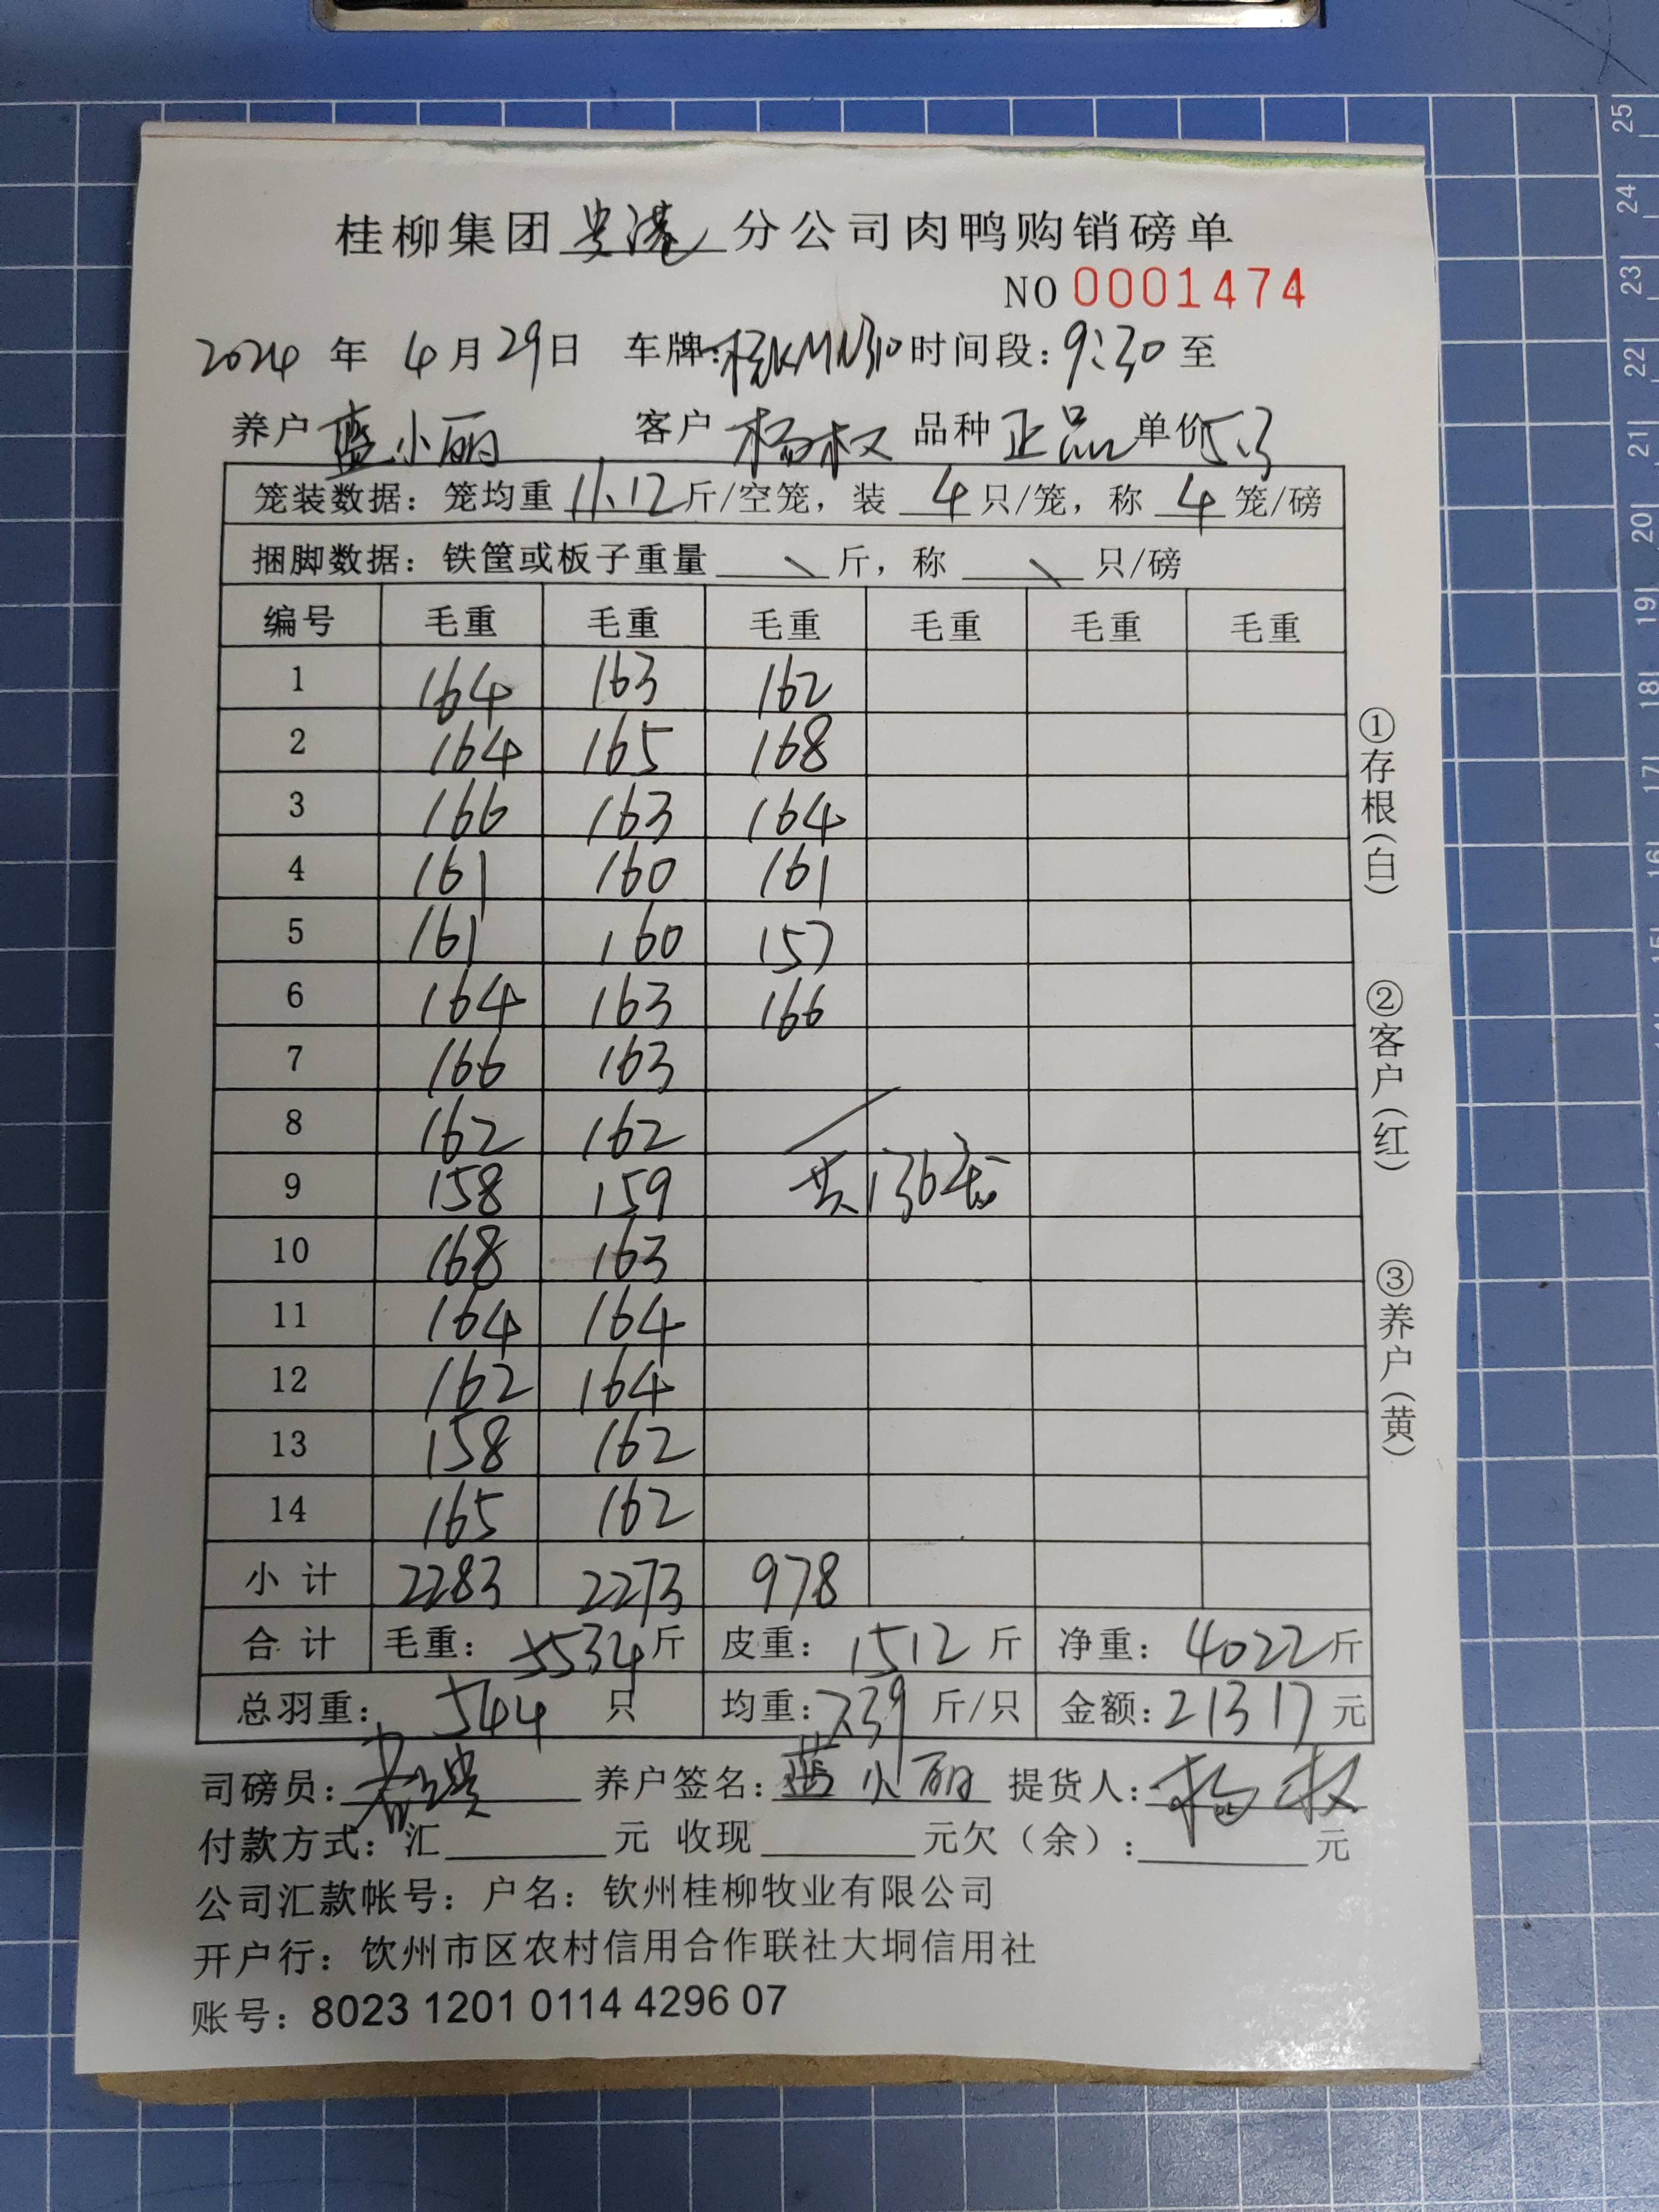 桂柳集团贵港分公司肉鸭购销磅单
NO 0001474
2024年4月29日 车牌:桂KMN310 时间段:9:30至
养户 蓝小丽 客户 杨权 品种 正品 单价5.3
笼装数据:笼均重 11.12 斤/空笼,装 4 只/笼,称 4 笼/磅
捆脚数据:铁筐或板子重量 \ 斤,称 \ 只/磅
编号 毛重 毛重 毛重 毛重 毛重 毛重
1 164 163 162
2 164 165 168
3 166 163 164
4 161 160 161
5 161 160 157
6 164 163 166
7 166 163
8 162 162
9 158 159 共136笼
10 168 163
11 164 164
12 162 164
13 158 162
14 165 162
小计 2283 2273 978
合计 毛重:5534斤 皮重:1512斤 净重:4022斤
总羽重:544 只 均重:7.39斤/只 金额:21317元
司磅员: 养户签名:蓝小丽 提货人:杨权
付款方式:汇 元 收现 元欠(余): 元
公司汇款帐号:户名:钦州桂柳牧业有限公司
开户行:饮州市区农村信用合作联社大垌信用社
账号:8023 1201 0114 4296 07
①存根(白)
②客户(红)
③养户(黄)
25
24
23
22
21
20
19
18
17
16
15